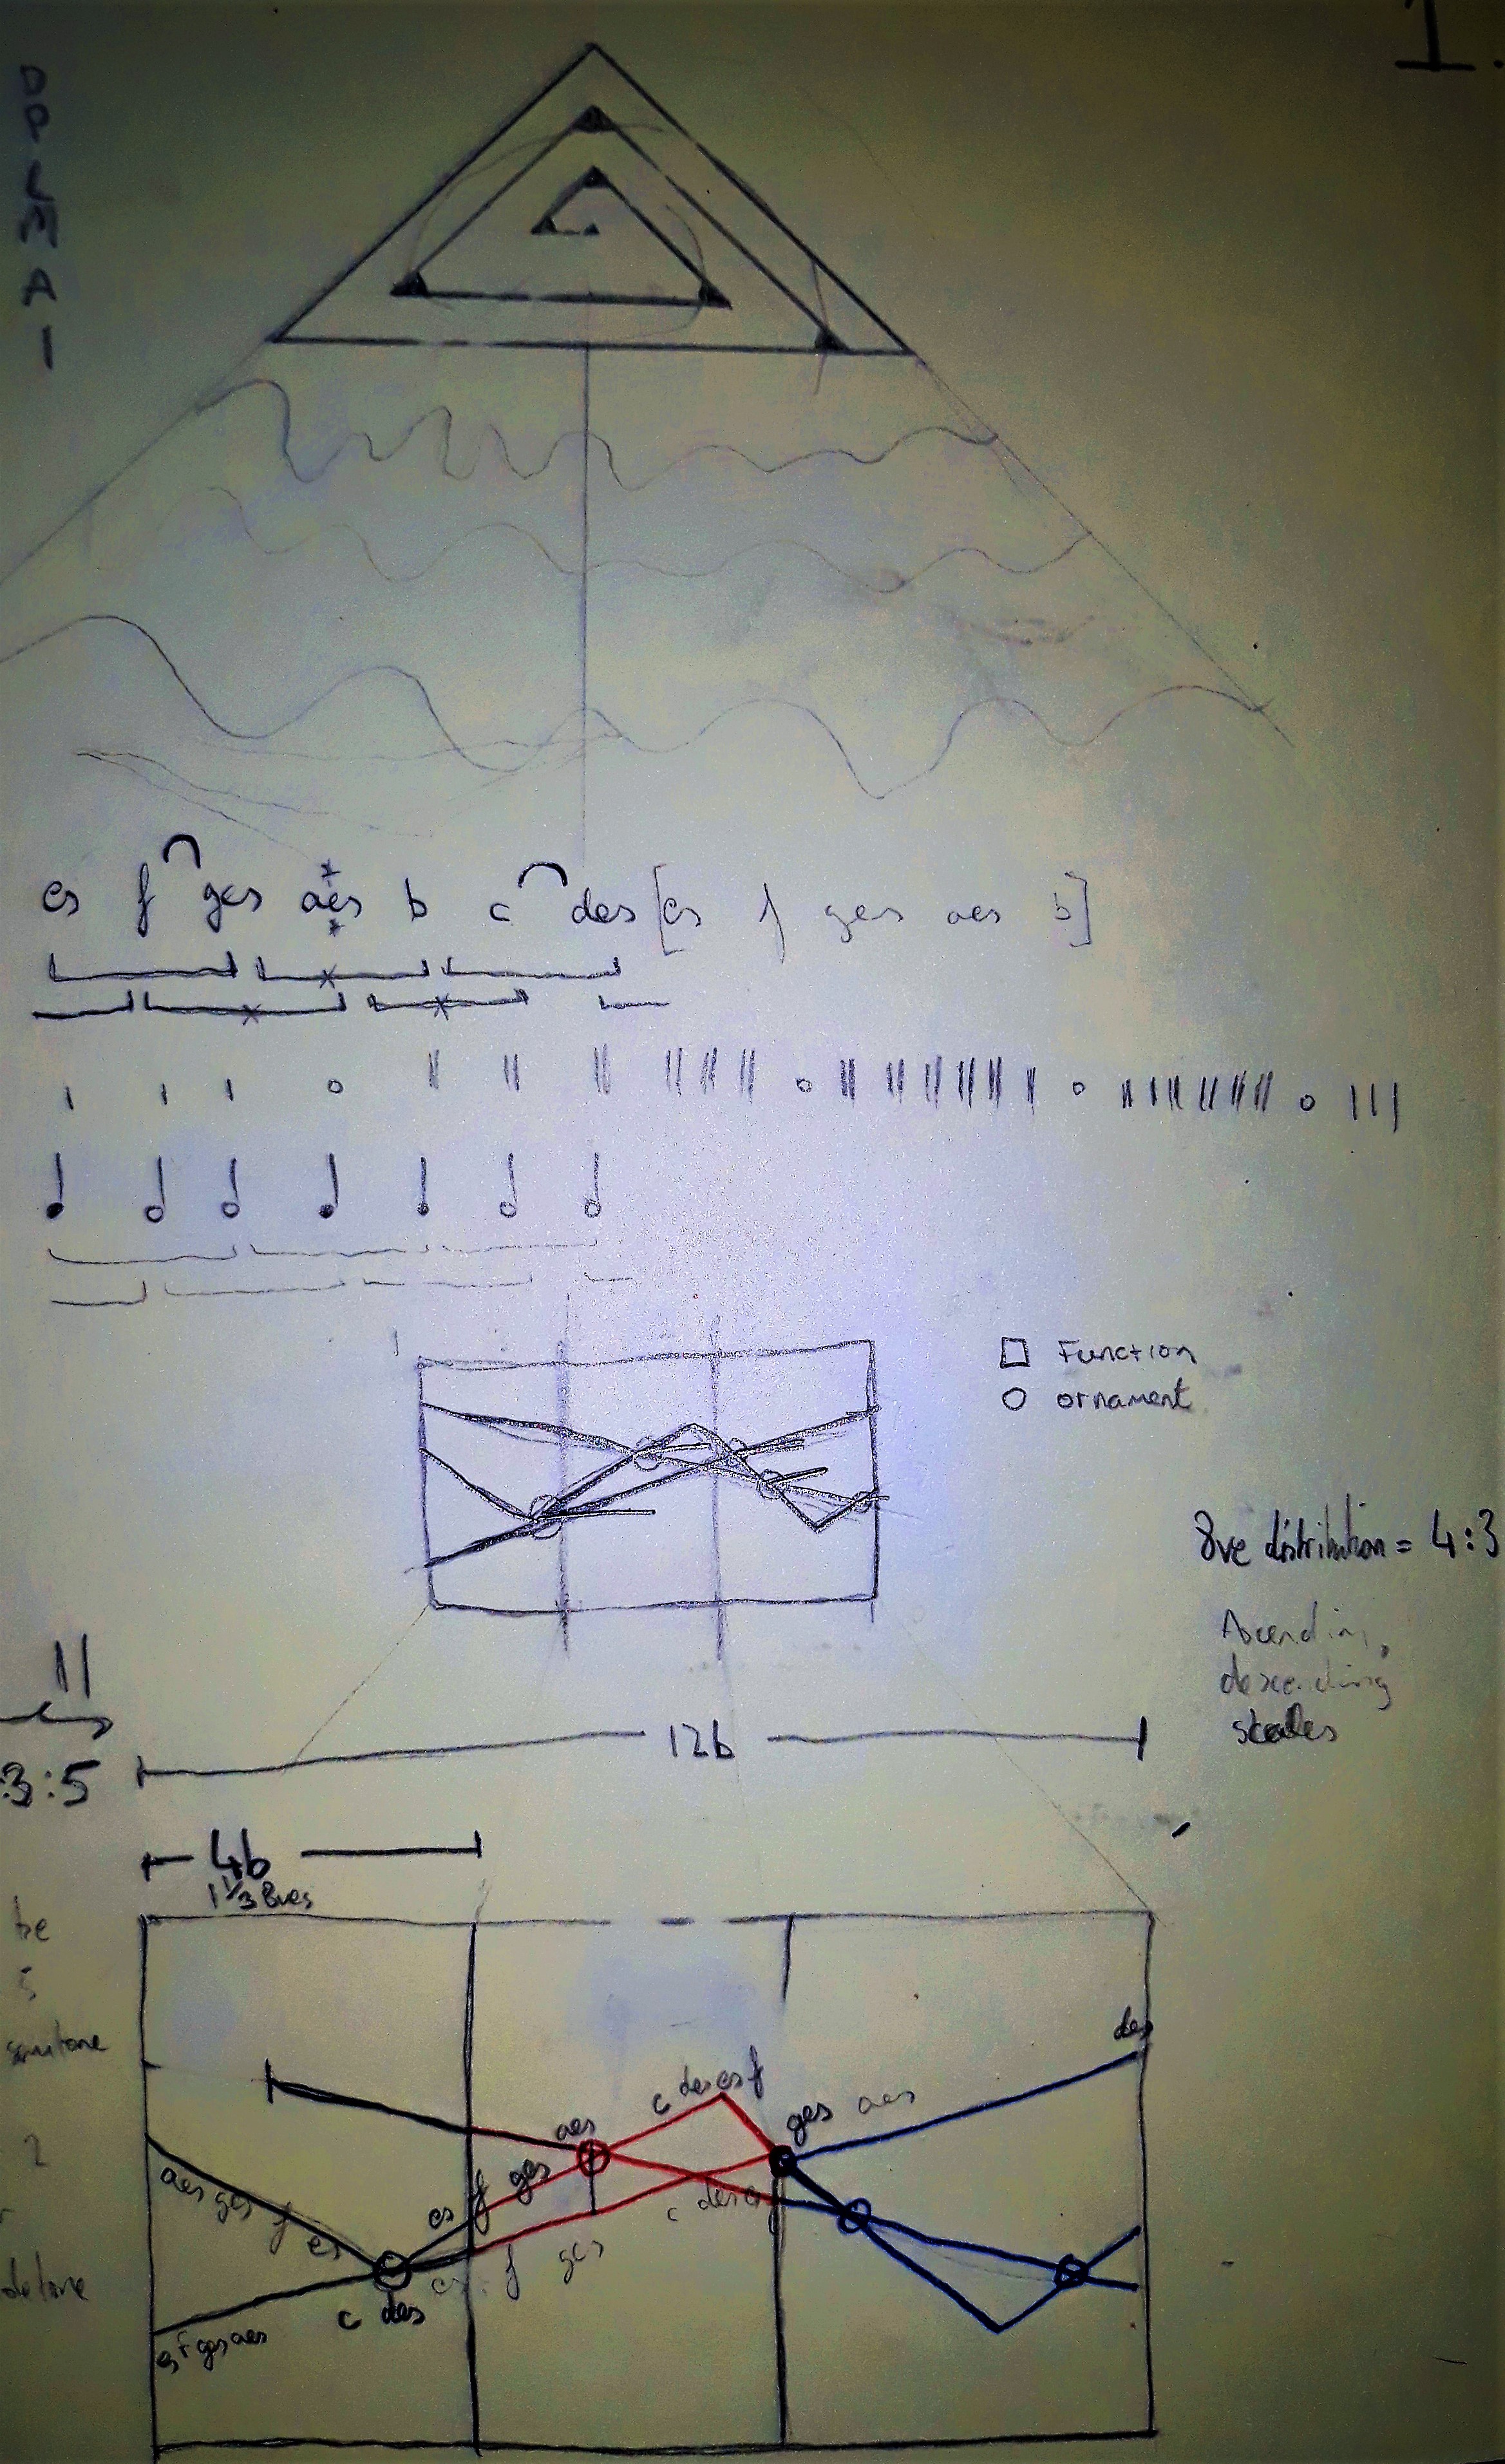 1.
D
P
L
M
A
I
es f ges aes b c des [es f ges aes b]
□ Function
○ ornament
8ve distribution = 4:3
Ascending,
descending
scales
11
3:5
12b
4b
1 1/3 8ves
be
5
semitone
2
des
c des es f
ges aes
aes
es f ges
aes ges f es
c des es
es f ges
c des
es f ges aes